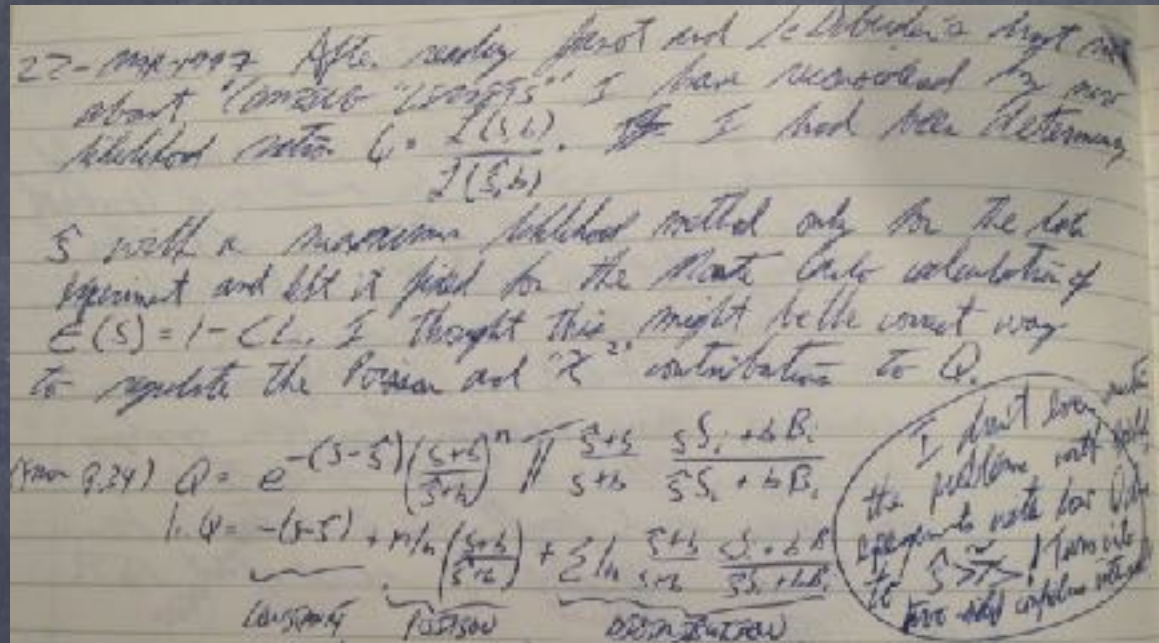 27-MAR-1997 After reading Janot and Le Diberder's draft note
about "COMBINING "LIMITS" I have reconsidered my new
likelihood ratio Q = L(s,b) / L(ŝ,b). I had been determining
ŝ with a maximum likelihood method only for the data
experiment and left it fixed for the Monte Carlo calculation of
E(s) = 1 - CL. I thought this might be the correct way
to regulate the Poisson and "χ²" contributions to Q.
Q = e^-(s-ŝ) ((s+b)/(ŝ+b))^n ∏ (ŝ+b)/(s+b) (sSᵢ + bBᵢ)/(ŝSᵢ + bBᵢ)
ln Q = -(s-ŝ) + n ln((s+b)/(ŝ+b)) + Σ ln (ŝ+b)/(s+b) (sSᵢ + bBᵢ)/(ŝSᵢ + bBᵢ)
CONSTANT POISSON DISTRIBUTION
I don't even
the problem with
experiments with low Q due
to ŝ > ! Turns into
two sided confidence interval